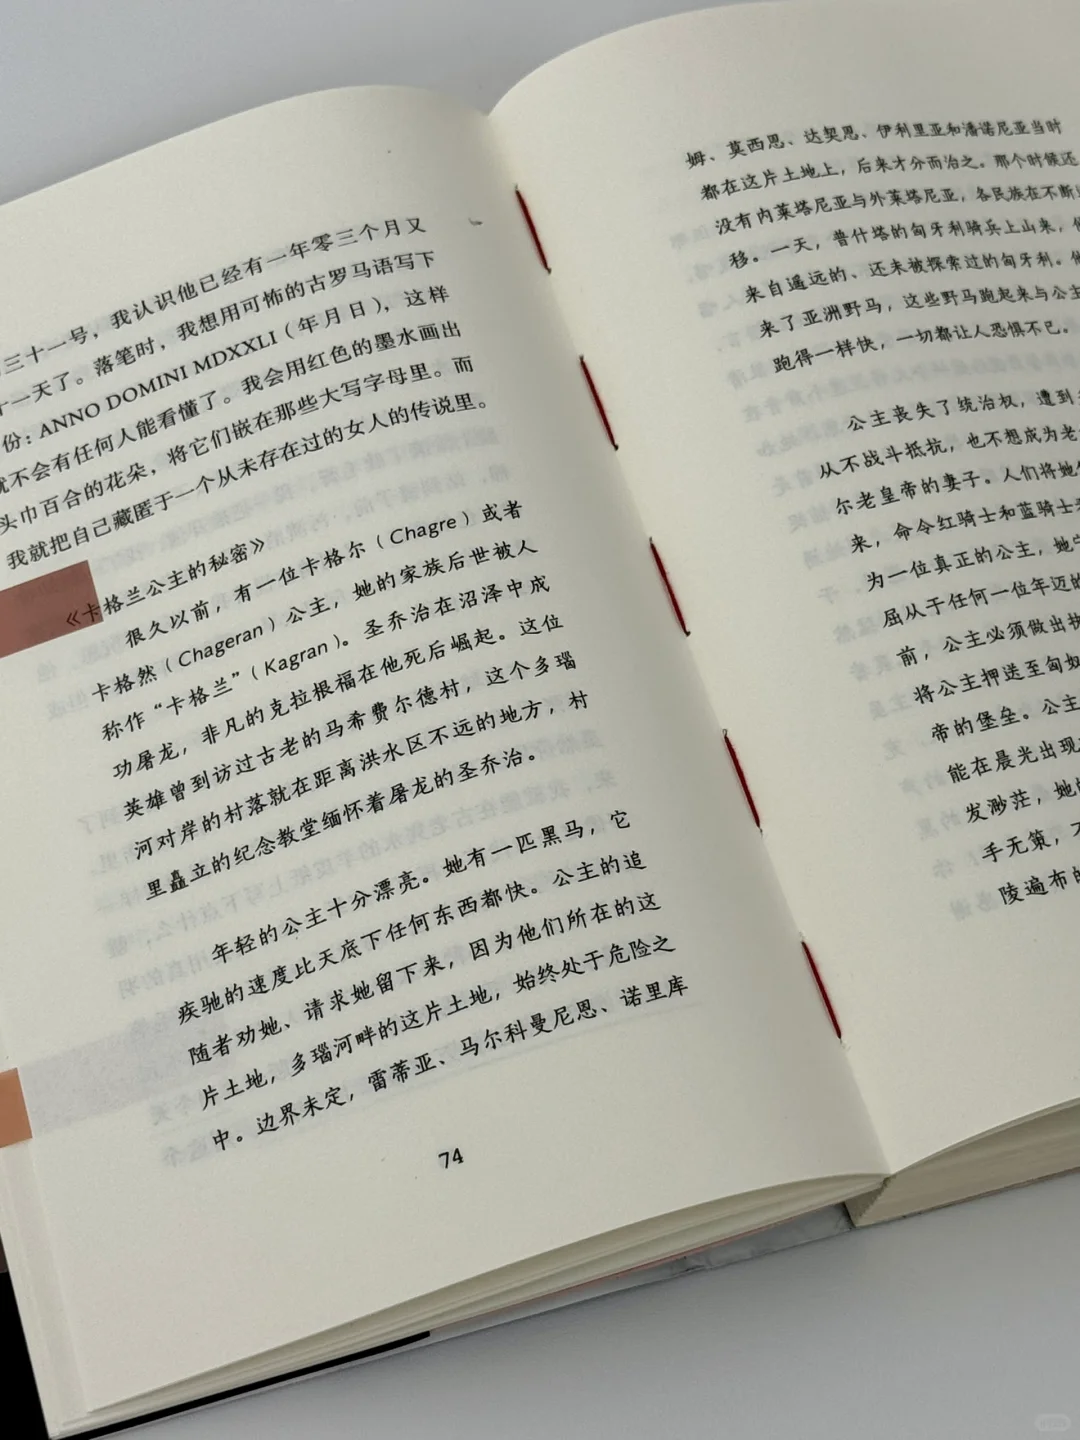 三十一号，我认识他已经有一年零三个月又
十一天了。落笔时，我想用可怖的古罗马语写下
份：ANNO DOMINI MDXXLI（年月日），这样
就不会有任何人能看懂了。我会用红色的墨水画出
头巾百合的花朵，将它们嵌在那些大写字母里。而
我就把自己藏匿于一个从未存在过的女人的传说里。
《卡格兰公主的秘密》
很久以前，有一位卡格尔（Chagre）或者
卡格然（Chageran）公主，她的家族后世被人
称作“卡格兰”（Kagran）。圣乔治在沼泽中成
功屠龙，非凡的克拉根福在他死后崛起。这位
英雄曾到访过古老的马希费尔德村，这个多瑙
河对岸的村落就在距离洪水区不远的地方，村
里矗立的纪念教堂缅怀着屠龙的圣乔治。
年轻的公主十分漂亮。她有一匹黑马，它
疾驰的速度比天底下任何东西都快。公主的追
随者劝她、请求她留下来，因为他们所在的这
片土地，多瑙河畔的这片土地，始终处于危险之
中。边界未定，雷蒂亚、马尔科曼尼恩、诺里库
74
姆、莫西恩、达契恩、伊利里亚和潘诺尼亚当时
都在这片土地上，后来才分而治之。那个时候还
没有内莱塔尼亚与外莱塔尼亚，各民族在不断
移。一天，普什塔的匈牙利骑兵上山来，
来自遥远的、还未被探索过的匈牙利。
来了亚洲野马，这些野马跑起来与公主
跑得一样快，一切都让人恐惧不已。
公主丧失了统治权，遭到
从不战斗抵抗，也不想成为老
尔老皇帝的妻子。人们将她
来，命令红骑士和蓝骑士
为一位真正的公主，她
屈从于任何一位年迈的
前，公主必须做出
将公主押送至匈
帝的堡垒。公主
能在晨光出现
发渺茫，她
手无策，
陵遍布的